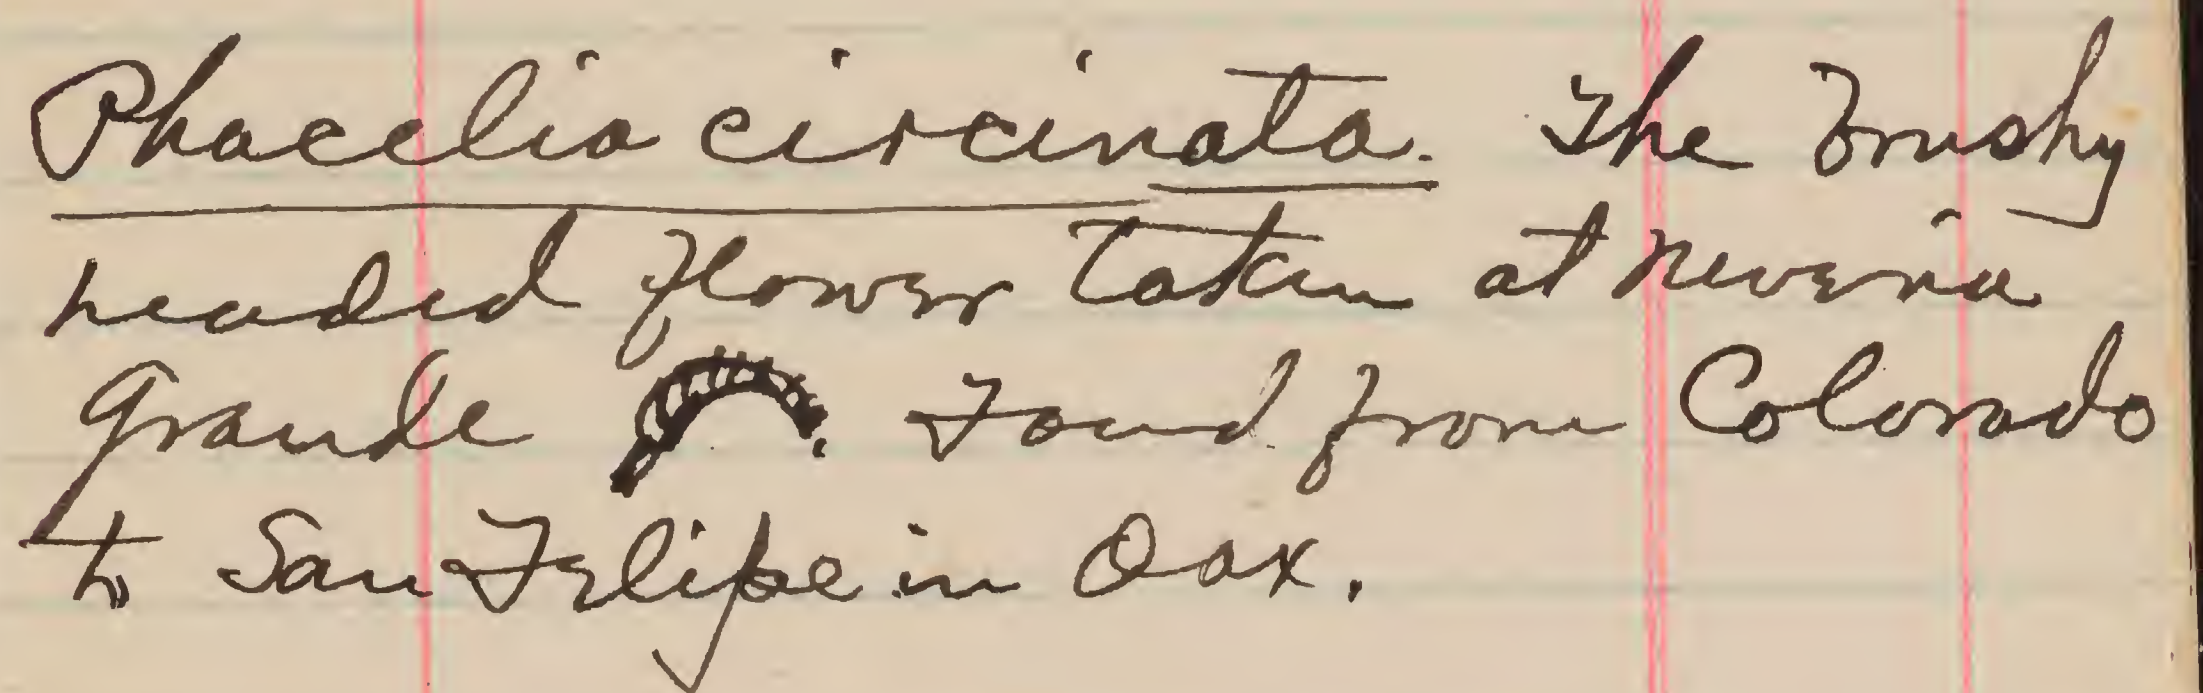 Phacelia circinata. The brushy
headed flower taken at Neveria
Grande . Found from Colorado
to San Felipe in Oax.